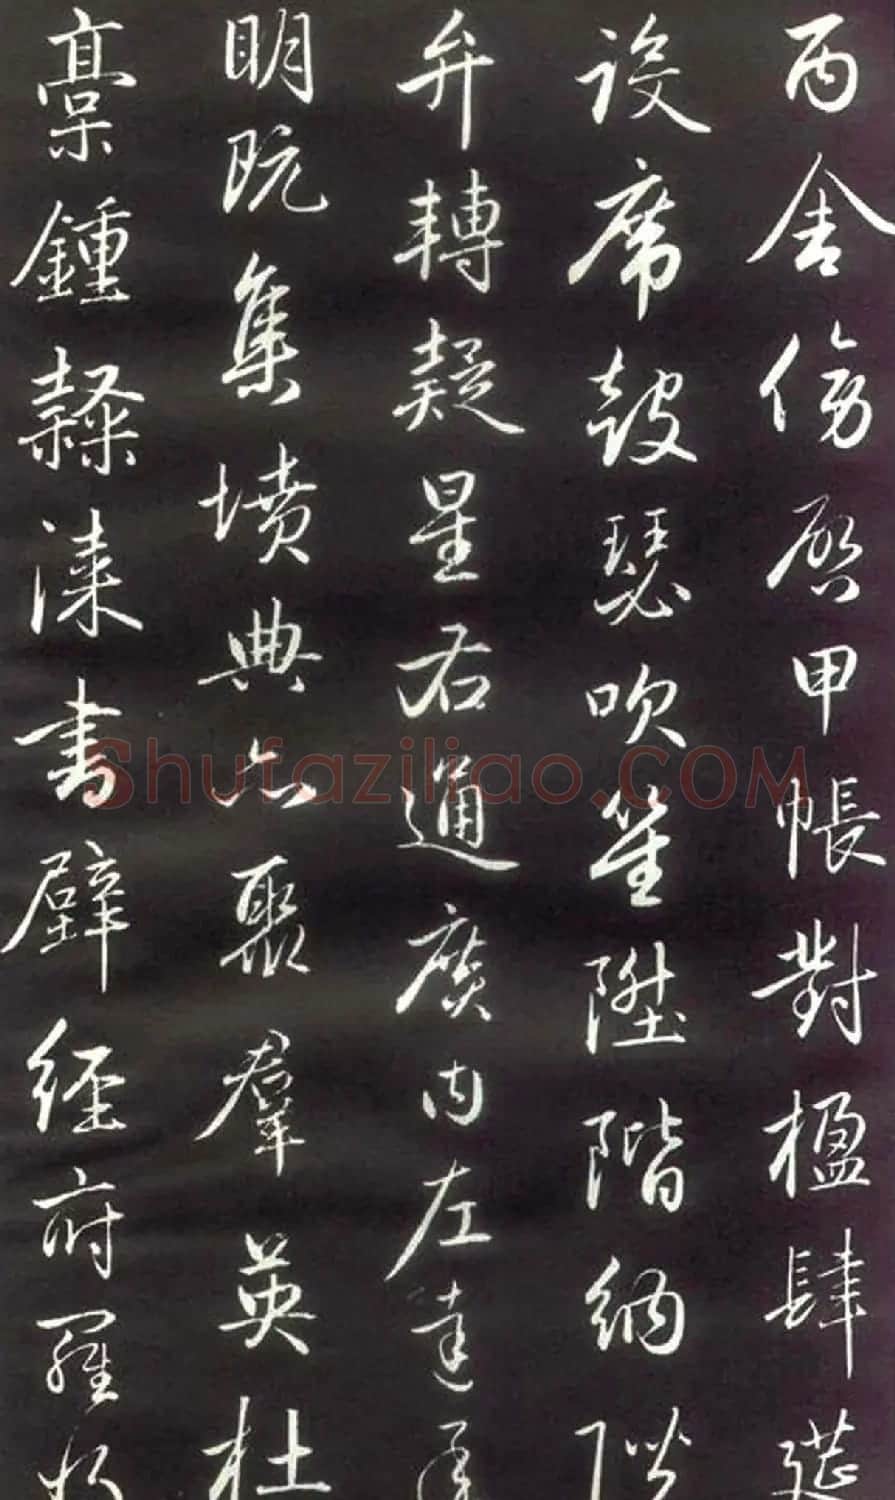 丙舍傍啓甲帳對楹肆筵
設席鼓瑟吹笙陞階納陛
弁轉疑星右通廣内左達承
明既集墳典亦聚羣英杜
稾鍾隸漆書壁經府羅將
Shufaziliao.COM